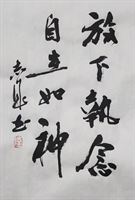 放下執念
自在如神
志书